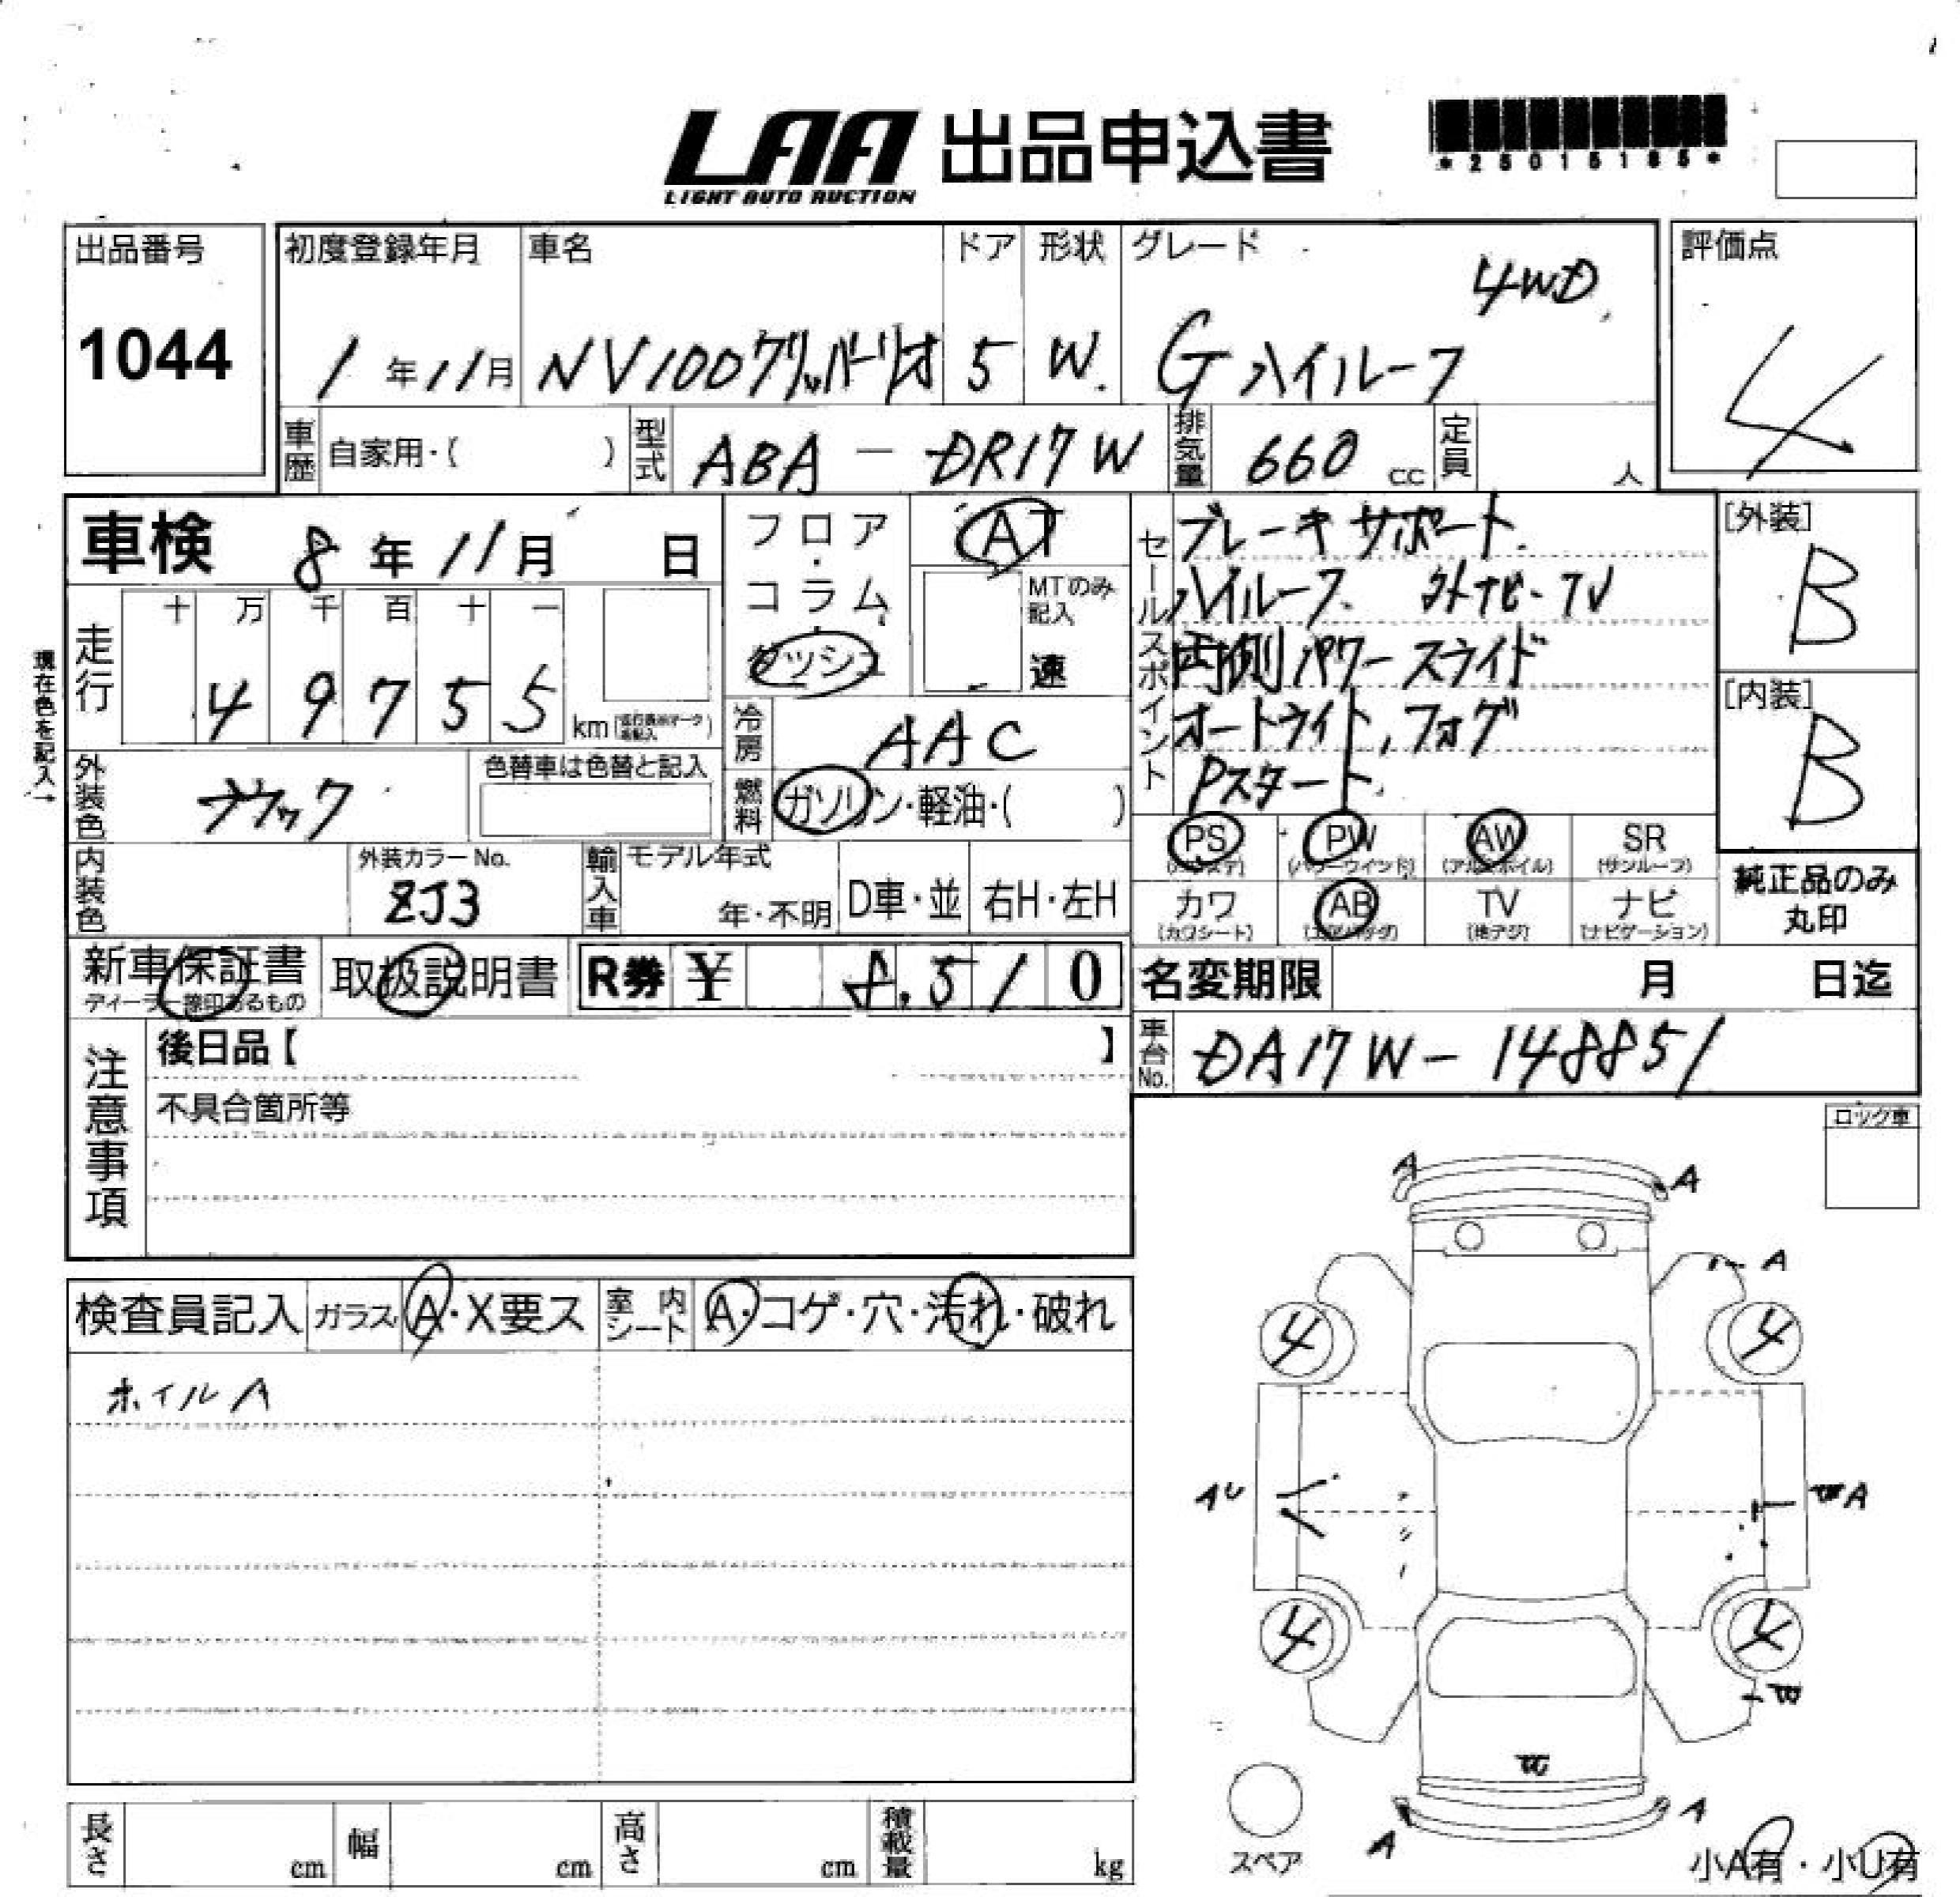 LAA 出品申込書
LIGHT AUTO AUCTION
*25015185*
出品番号
1044
初度登録年月
1年11月
車名
NV100クリッパーリオ
ドア
5
形状
W.
グレード
4WD
G ハイルーフ
評価点
4
車歴 自家用・( )
型式 ABA - DR17W
排気量 660 cc
定員 人
車検 8年11月 日
フロア・コラム・ダッシュ
AT
MTのみ記入
速
走行 十 万 千 百 十 一
49755 km
現在色を記入→
セールスポイント
ブレーキサポート
ハイルーフ. 外ナビ-TV
両側パワースライド
オートライト, フォグ
Pスタート
[外装]
B
[内装]
B
冷房 AAC
燃料 ガソリン・軽油・( )
外装色 ブラック
色替車は色替と記入
内装色
外装カラーNo.
ZJ3
輸入車 モデル年式
年・不明 D車・並 右H・左H
PS (パワステ) PW (パワーウインド) AW (アルミホイル) SR (サンルーフ)
カワ (カワシート) AB (エアバッグ) TV (地デジ) ナビ (ナビゲーション)
純正品のみ
丸印
新車保証書
ディーラー捺印あるもの
取扱説明書
R券 ¥ 8,510
名変期限 月 日迄
車台No. DA17W-148851
注意事項
後日品【 】
不具合箇所等
ロック車
検査員記入 ガラス A・X要ス 室内シート A・コゲ・穴・汚れ・破れ
ホイルA
A A
A
4 4
AU A
4 4
A A
スペア
小A有・小U有
長さ cm 幅 cm 高さ cm 積載量 kg